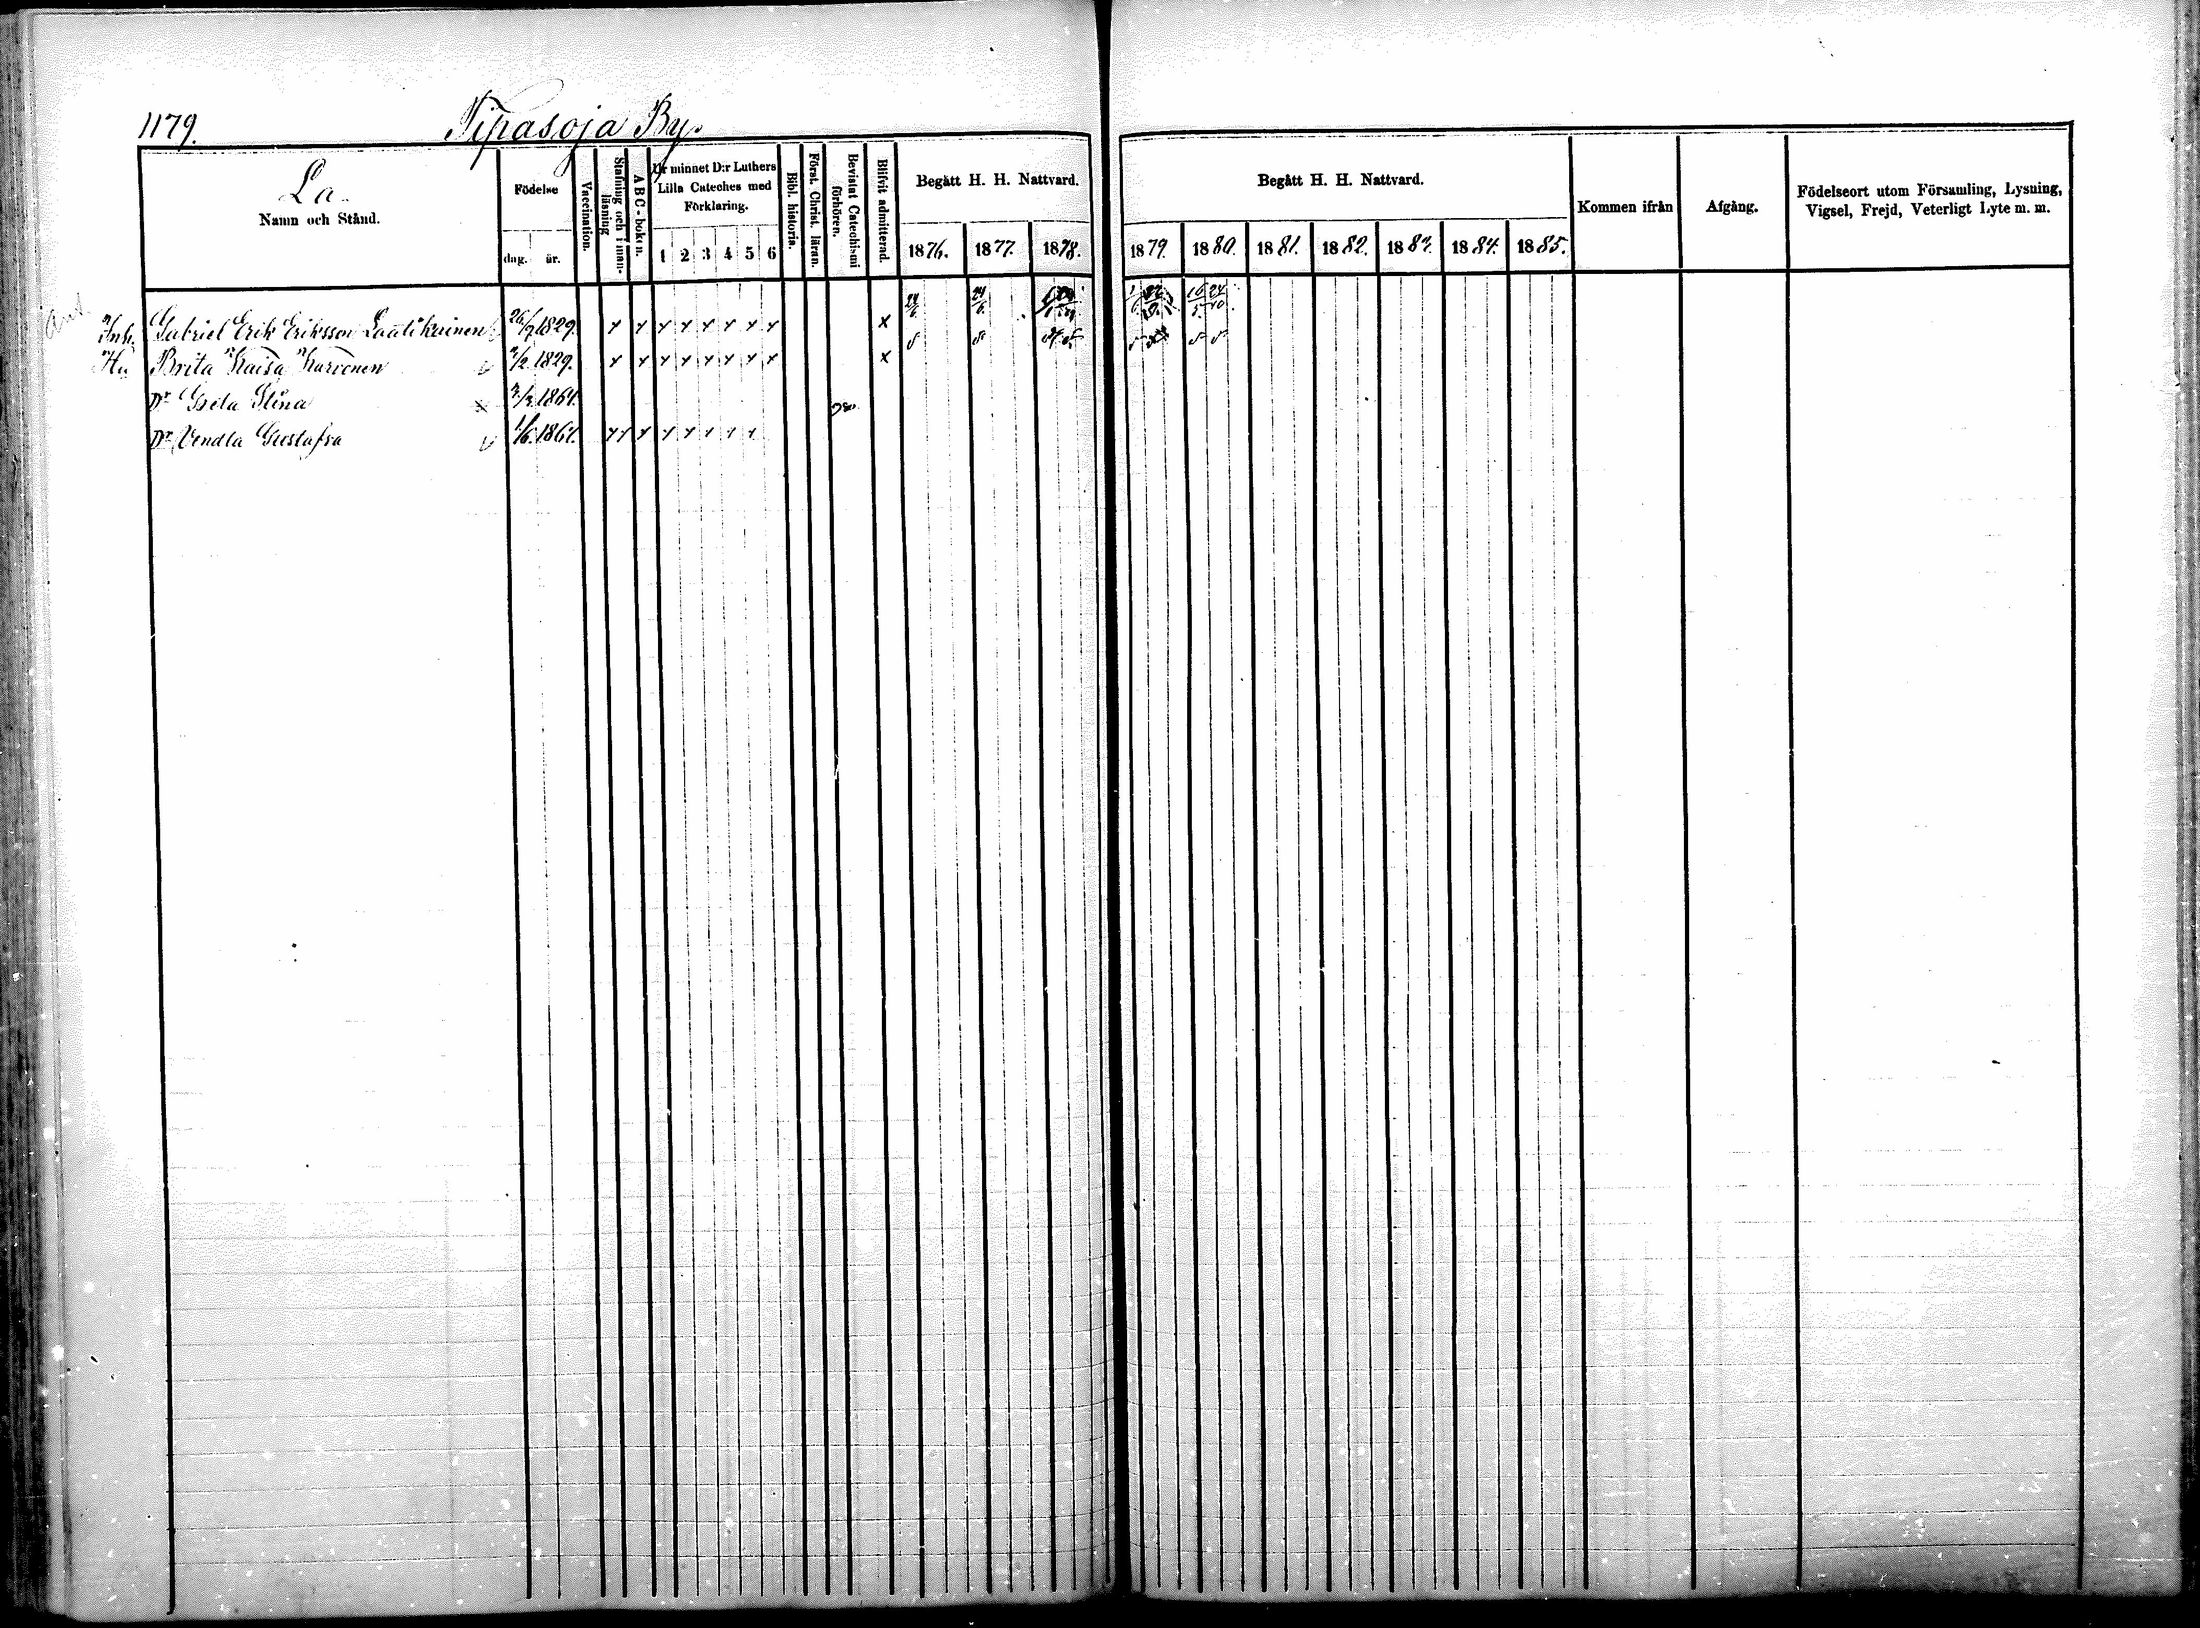 1179.
Tipasoja By.
La.
Namn och Stånd.
Födelse
dag. år.
Vaccination.
Stafning och Innanläsning
ABC-boken.
Ur minnet D:r Luthers Lilla Cateches med Förklaring.
1 2 3 4 5 6
Bibl. historia.
Först. Christ. läran.
Bevistat Catechismi förhören.
Blifvit admitterad.
Begått H. H. Nattvard.
1876. 1877. 1878.
Begått H. H. Nattvard.
1879. 1880. 1881. 1882. 1883. 1884. 1885.
Kommen ifrån
Afgång.
Födelseort utom Församling, Lysning, Vigsel, Frejd, Veterligt Lyte m. m.
Inh. Gabriel Erik Eriksson Laatikainen 26/9 1829. x x x x x x x x x 24/6 24/6
Hu Brita Kaisa Karvonen 1829. x x x x x x x x x
Dr Greta Stina 1864.
Dr Vendla Gustafva 1/6 1867. x x x x x x x x
16/5 24/10